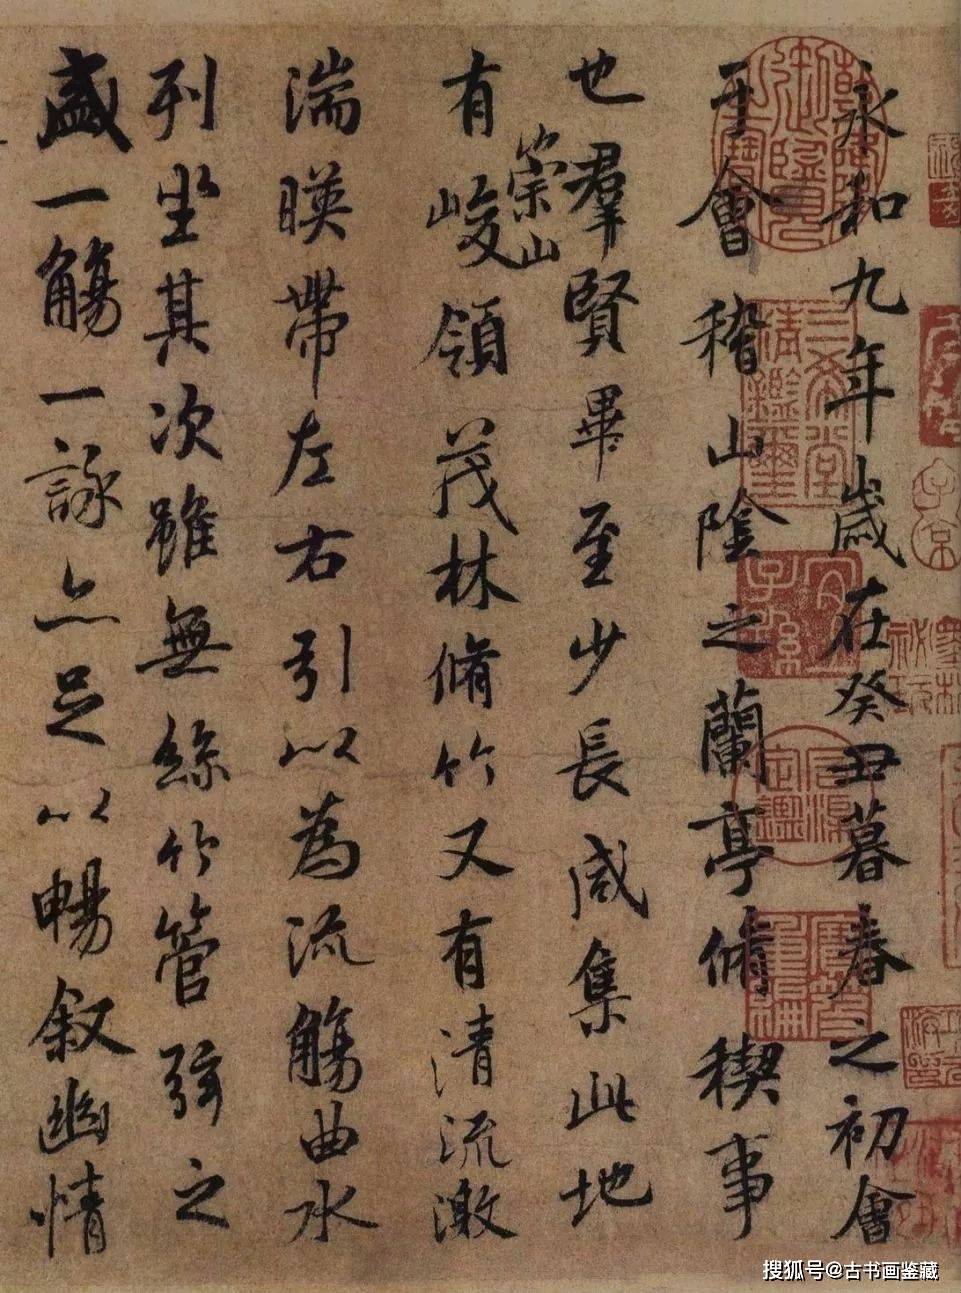 永和九年歲在癸丑暮春之初會
于會稽山陰之蘭亭脩稧事
也羣賢畢至少長咸集此地
有崇山峻領茂林脩竹又有清流激
湍暎帶左右引以為流觴曲水
列坐其次雖無絲竹管弦之
盛一觴一詠亦足以暢敘幽情
三希堂精鑑璽
宜子孫
石渠定鑑
寶笈重編
子京
搜狐号@古书画鉴藏